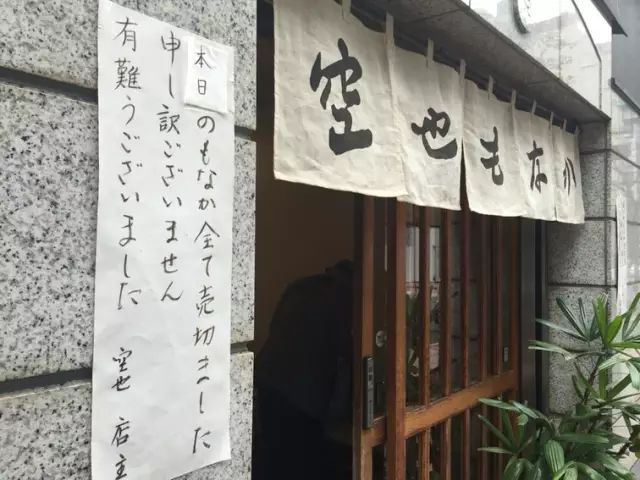 本日のもなか全て売切ました
申し訳ございません
有難うございました 空也 店主
空也もなか